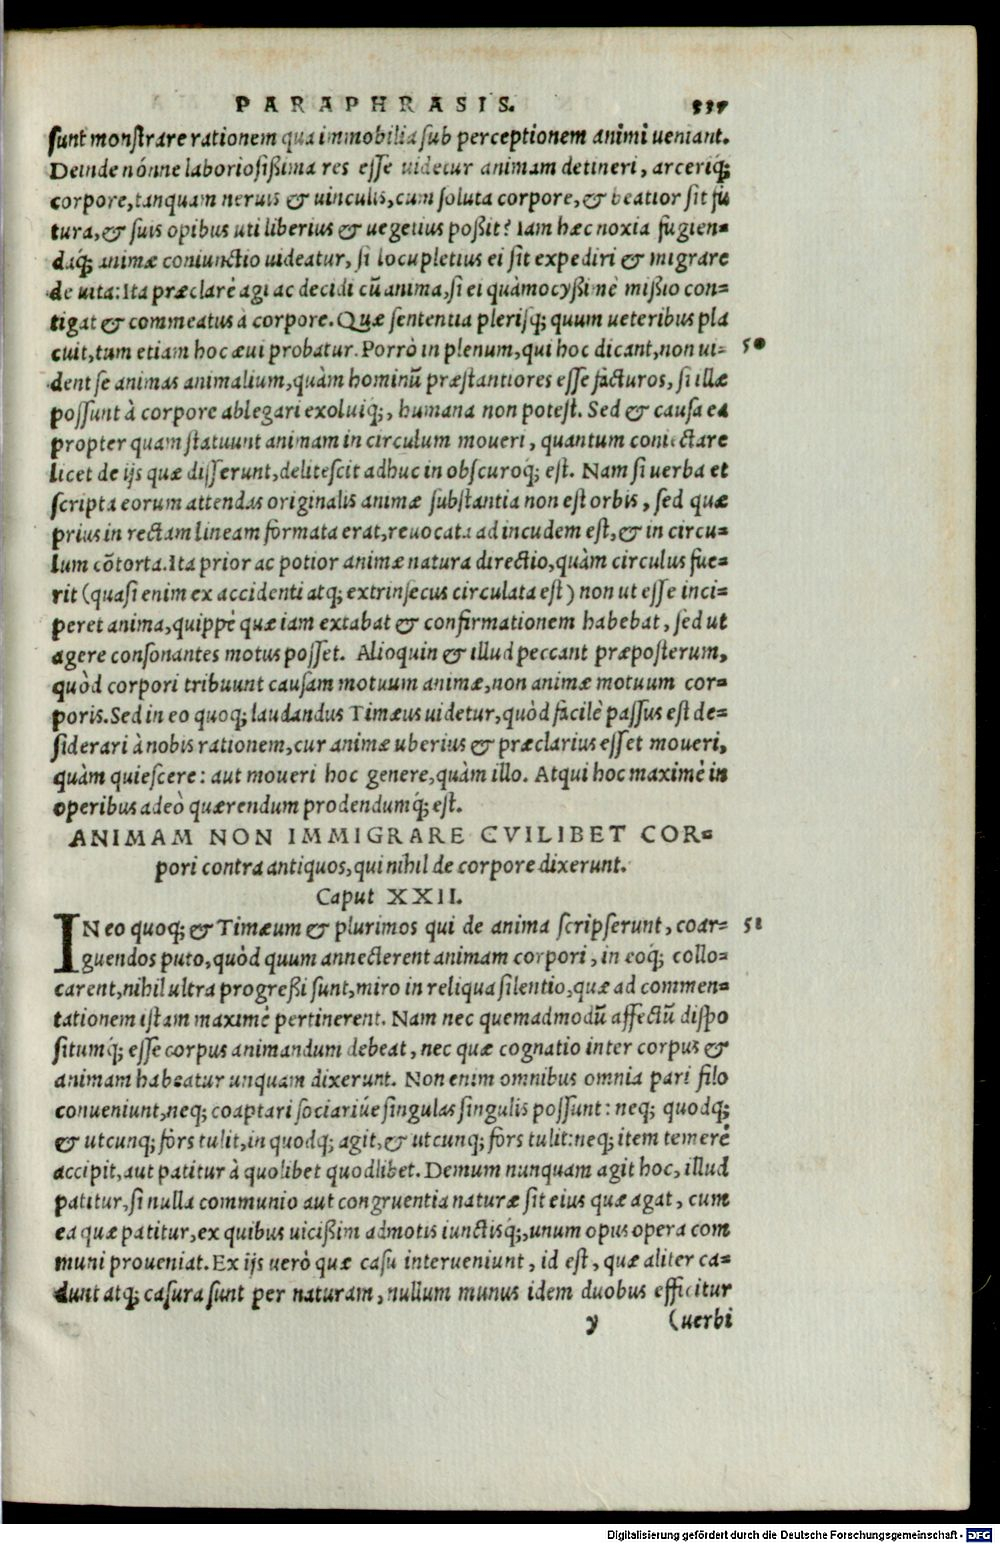 PARAPHRASIS. 337
sunt monstrare rationem qua immobilia sub perceptionem animi ueniant.
Deinde nónne laboriosißima res esse uidetur animam detineri, arceriq́;
corpore, tanquam neruis & uinculis, cum soluta corpore, & beatior sit fu
tura, & suis opibus uti liberius & uegetius poßit? Iam hæc noxia fugien=
daq́; animæ coniunctio uideatur, si locupletius ei sit expediri & migrare
de uita: Ita præclarè agi ac decidi cū anima, si ei quàm ocyßimè mißio con=
tigat & commeatus à corpore. Quæ sententia plerisq; quum ueteribus pla
cuit, tum etiam hoc æui probatur. Porrò in plenum, qui hoc dicant, non ui= 50
dent se animas animalium, quàm hominū præstantiores esse facturos, si illæ
possunt à corpore ablegari exoluiq́;, humana non potest. Sed & causa ea
propter quam statuunt animam in circulum moueri, quantum coniectare
licet de ijs quæ disserunt, delitescit adhuc in obscuroq́; est. Nam si uerba et
scripta eorum attendas originalis animæ substantia non est orbis, sed quæ
prius in rectam lineam formata erat, reuocata ad incudem est, & in circu=
lum cōtorta. Ita prior ac potior animæ natura directio, quàm circulus fue=
rit (quasi enim ex accidenti atq; extrinsecus circulata est) non ut esse inci=
peret anima, quippè quæ iam extabat & confirmationem habebat, sed ut
agere consonantes motus posset. Alioquin & illud peccant præposterum,
quòd corpori tribuunt causam motuum animæ, non animæ motuum cor=
poris. Sed in eo quoq; laudandus Timæus uidetur, quòd facilè passus est de=
siderari à nobis rationem, cur animæ uberius & præclarius esset moueri,
quàm quiescere: aut moueri hoc genere, quàm illo. Atqui hoc maximè in
operibus adeò quærendum prodendumq́; est.
ANIMAM NON IMMIGRARE CVILIBET COR=
pori contra antiquos, qui nihil de corpore dixerunt.
Caput XXII.
IN eo quoq; & Timæum & plurimos qui de anima scripserunt, coar= 51
guendos puto, quòd quum annecterent animam corpori, in eoq́; collo=
carent, nihil ultra progreßi sunt, miro in reliqua silentio, quæ ad commen=
tationem istam maximè pertinerent. Nam nec quemadmodū affectū dispo
situmq́; esse corpus animandum debeat, nec quæ cognatio inter corpus &
animam habeatur unquam dixerunt. Non enim omnibus omnia pari filo
conueniunt, neq; coaptari sociariúe singulas singulis possunt: neq; quodq;
& utcunq; fors tulit, in quodq; agit, & utcunq; fors tulit: neq; item temerè
accipit, aut patitur à quolibet quodlibet. Demum nunquam agit hoc, illud
patitur, si nulla communio aut congruentia naturæ sit eius quæ agat, cum
ea quæ patitur, ex quibus uicißim admotis iunctisq́;, unum opus opera com
muni proueniat. Ex ijs uerò quæ casu interueniunt, id est, quæ aliter ca=
dunt atq; casura sunt per naturam, nullum munus idem duobus efficitur
y (uerbi
Digitalisierung gefördert durch die Deutsche Forschungsgemeinschaft - DFG